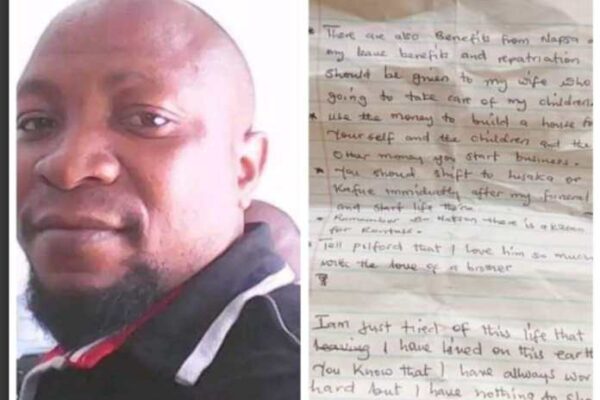 There are also Benefits from Napsa
my leave benefits and repatriation
should be given to my wife who
going to take care of my children
use the money to build a house
Your self and the children and the
other money you start business.
You should shift to Lusaka or
Kafue immidiatly after my funeral
and start life there
Remember there is a
for
Tell pilford that I love him so much
with the love of a brother
I am just tired of this life that
leaving I have lived on this earth
You know that I have allways wor
hard but I have nothing to sho